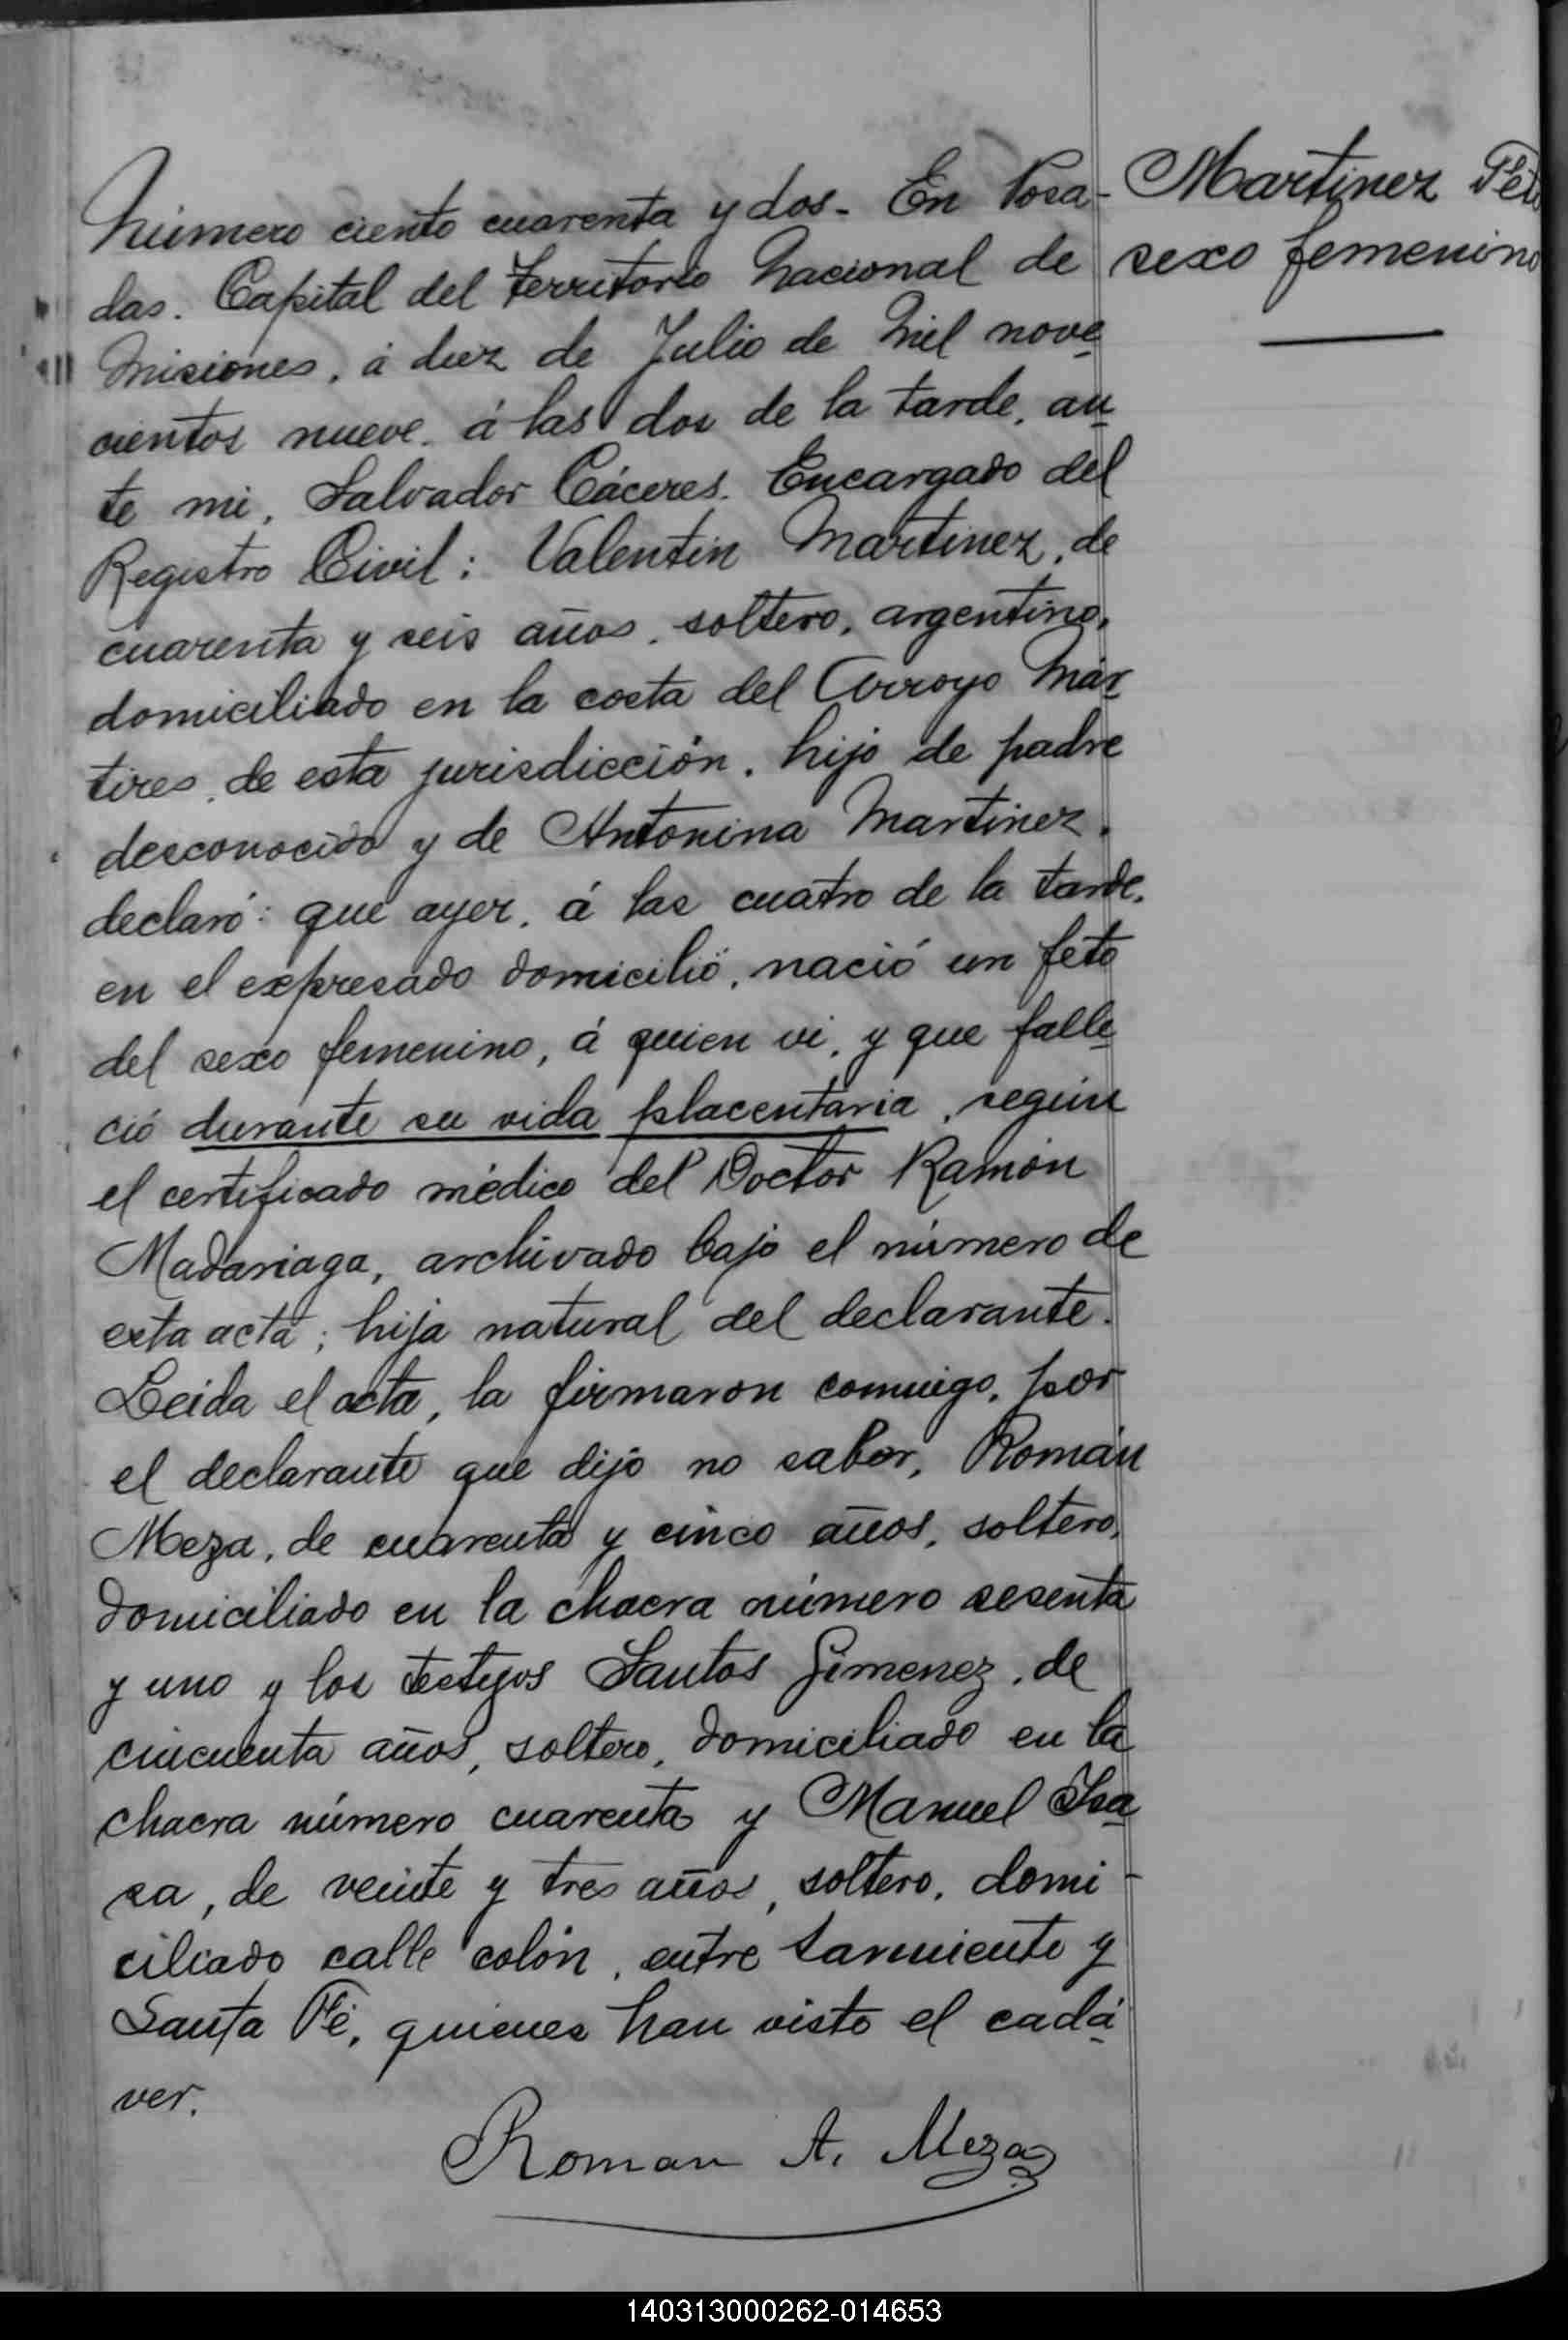 Martinez Feto
sexo femenino
Número ciento cuarenta y dos. En Posa-
das. Capital del Territorio Nacional de
Misiones, á diez de Julio de Mil nove
cientos nueve á las dos de la tarde, an
te mi, Salvador Cáceres. Encargado del
Registro Civil: Valentin Martinez, de
cuarenta y seis años, soltero, argentino,
domiciliado en la costa del Arroyo Már
tires, de esta jurisdicción, hijo de padre
desconocido y de Antonina Martinez,
declaró: que ayer, á las cuatro de la tarde,
en el expresado domicilio, nació un feto
del sexo femenino, á quien vi, y que falle
ció durante su vida placentaria, según
el certificado médico del Doctor Ramón
Madariaga, archivado bajo el número de
esta acta; hija natural del declarante.
Leida el acta, la firmaron conmigo, por
el declarante que dijo no saber, Román
Meza, de cuarenta y cinco años, soltero,
domiciliado en la chacra número sesenta
y uno y los testigos Santos Gimenez, de
cincuenta años, soltero, domiciliado en la
chacra número cuarenta y Manuel Isa
sa, de veinte y tres años, soltero, domi-
ciliado calle colón, entre Sarmiento y
Santa Fé, quienes han visto el cadá
ver.
Roman A. Meza
140313000262-014653